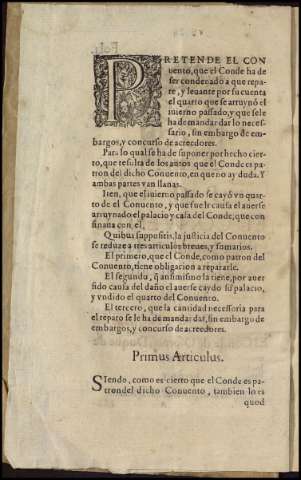 PRETENDE EL CON
uento, que el Conde ha de
ser condenado a que repa-
re, y leuante por su cuenta
el quarto que se arruynò el
inierno passado, y que se le
ha de mandar dar lo neces-
sario, sin embargo de em-
bargos, y concurso de acreedores.
Para lo qual se ha de suponer por hecho cier-
to, que resulta de los autos que el Côde es pa-
tron del dicho Conuento, en que no ay duda. Y
ambas partes van llanas.
Iten, que el inierno passado se cayò vn quar-
to de el Conuento, y que fue la causa el auerse
arruynado el palacio y casa del Conde, que con
finaua con el.
Quibus suppositis, la justicia del Conuento
se reduze a tres articulos breues, y sumarios.
El primero, que el Conde, como patron del
Conuento, tiene obligacion a repararle.
El segundo, q̃ ansimismo la tiene, por auer
sido causa del daño el auerse caydo su palacio,
y vndido el quarto del Conuento.
El tercero, que la cantidad necessaria para
el reparo se le ha de mandar dar, sin embargo de
embargos, y concurso de acreedores.
Primus Articulus.
SIendo, como es cierto que el Conde es pa-
tron del dicho Conuento, tambien lo es
quod